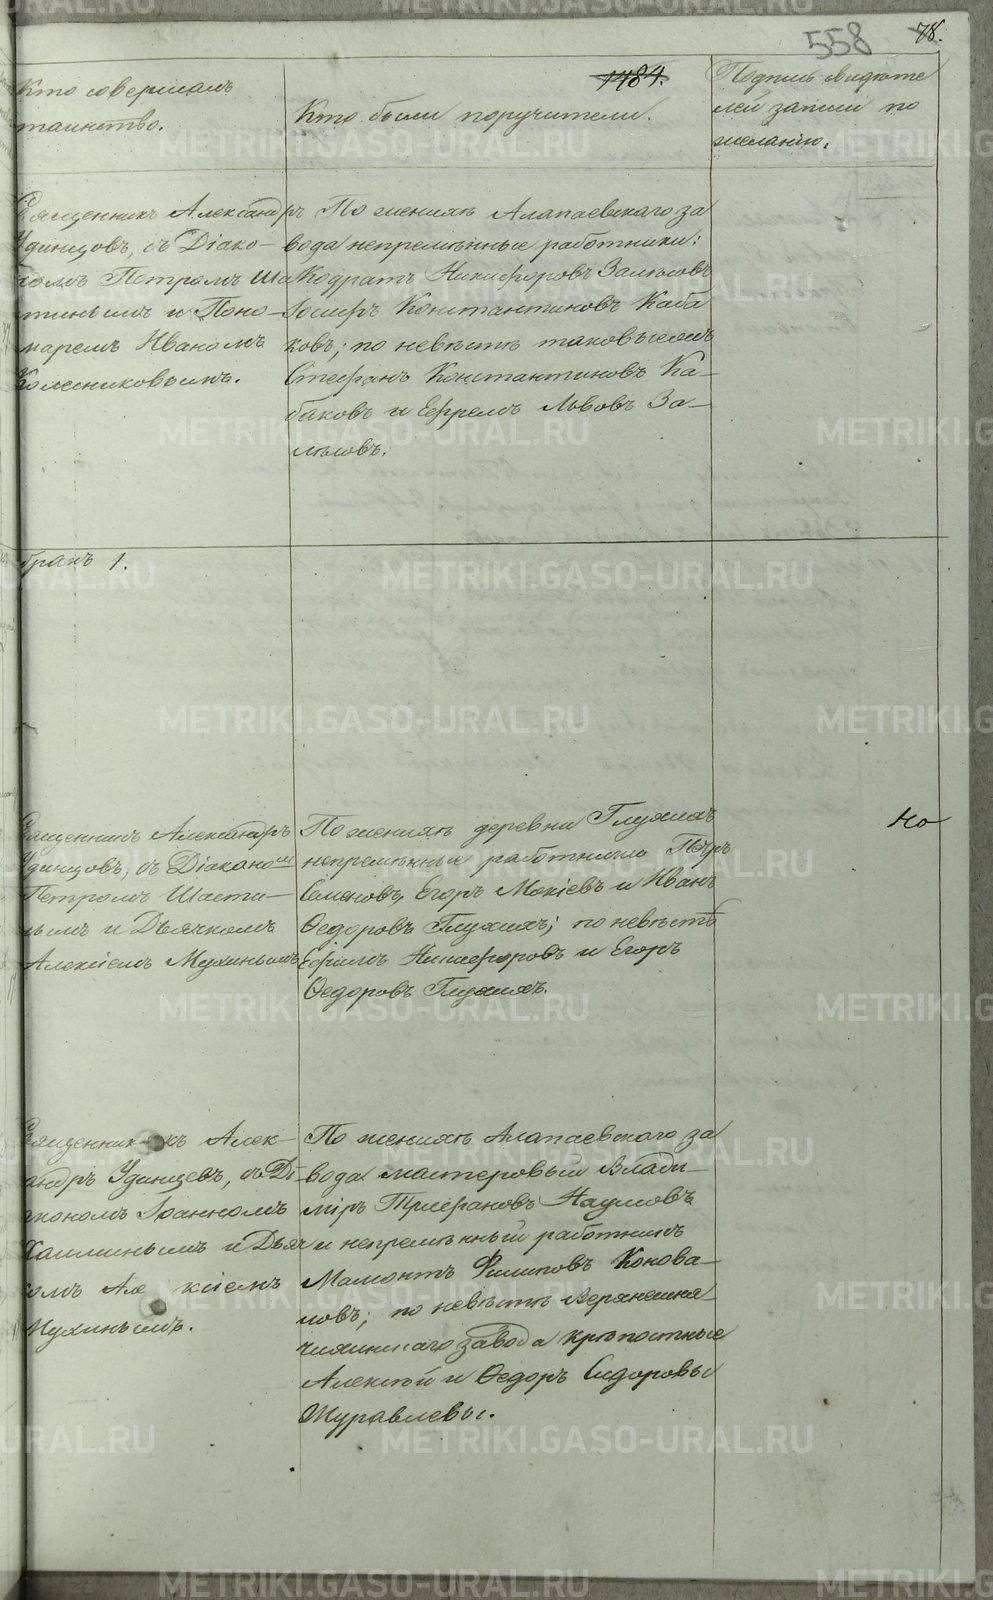 558 78.
Кто совершалъ
таинство.
1484.
Кто были поручители.
Подпись свидѣте
лей записи по
желанію.
Священникъ Александръ
Удинцовъ, съ Діако-
номъ Петромъ Ша
тинымъ и Поно-
маремъ Иваномъ
Колесниковымъ.
По женихѣ Алапаевскаго за
вода непремѣнные работники:
Кодратъ Никифоровъ Заньковъ
Іосифъ Константиновъ Каба
ковъ; по невѣстѣ таковыежъ
Стефанъ Константиновъ Ка-
баковъ и Ефремъ Львовъ За-
бракъ 1.
Священникъ Александръ
Удинцовъ, съ Діакономъ
Петромъ Шасти-
нымъ и Дьячкомъ
Алексіемъ Мухинымъ
По женихѣ деревни Глухихъ
непремѣнные работники Петръ
Семеновъ, Егоръ Мокіевъ и Иванъ
Ѳедоровъ Глухихъ; по невѣстѣ
Ефимъ Никифоровъ и Егоръ
Ѳедоровъ Глухихъ.
Но
Священникъ Алек-
сандръ Удинцевъ, съ Ді-
акономъ Іоанномъ
Хаминымъ и Дьяч
комъ Але ксіемъ
Мухинымъ.
По женихѣ Алапаевскаго за
вода мастеровый Влади-
міръ Трифановъ Наумовъ
и непремѣнный работникъ
Мамонтъ Филиповъ Конова-
ловъ; по невѣстѣ Верхнейше-
чихинскаго завода крѣпостные
Алексѣй и Ѳедоръ Сидоровы
Журавлевы.
METRIKI.GASO-URAL.RU